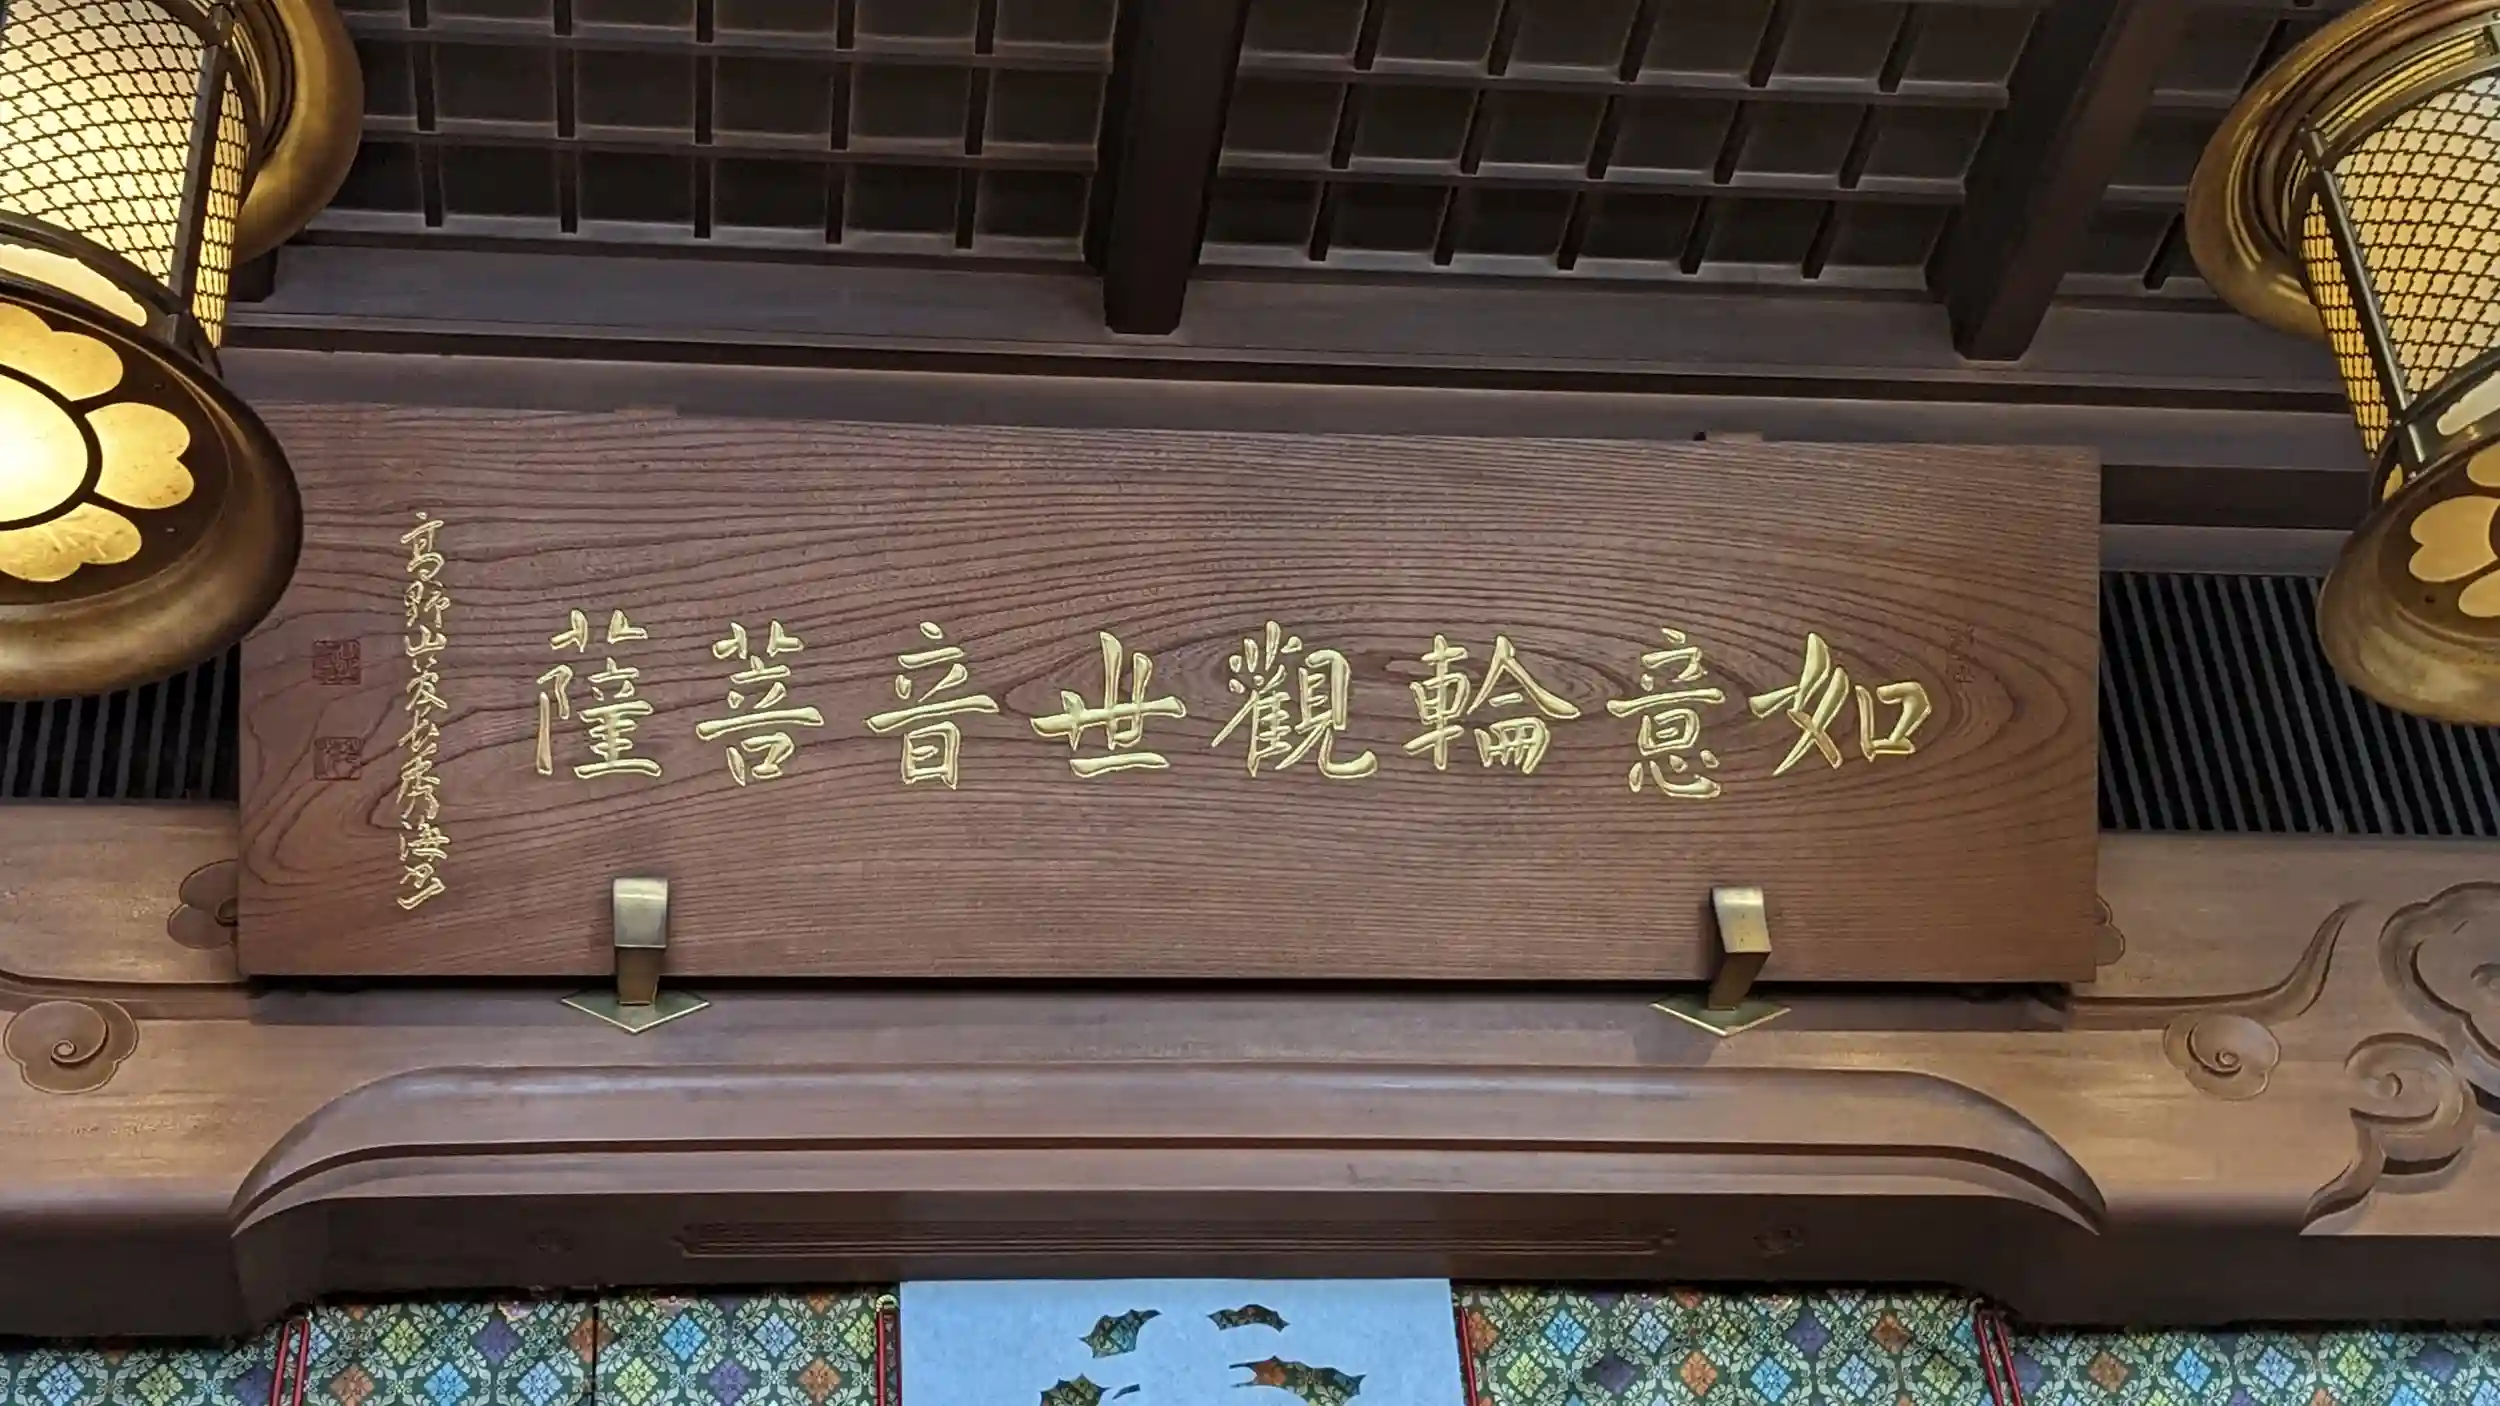 如意輪觀世音菩薩
高野山管長秀海書